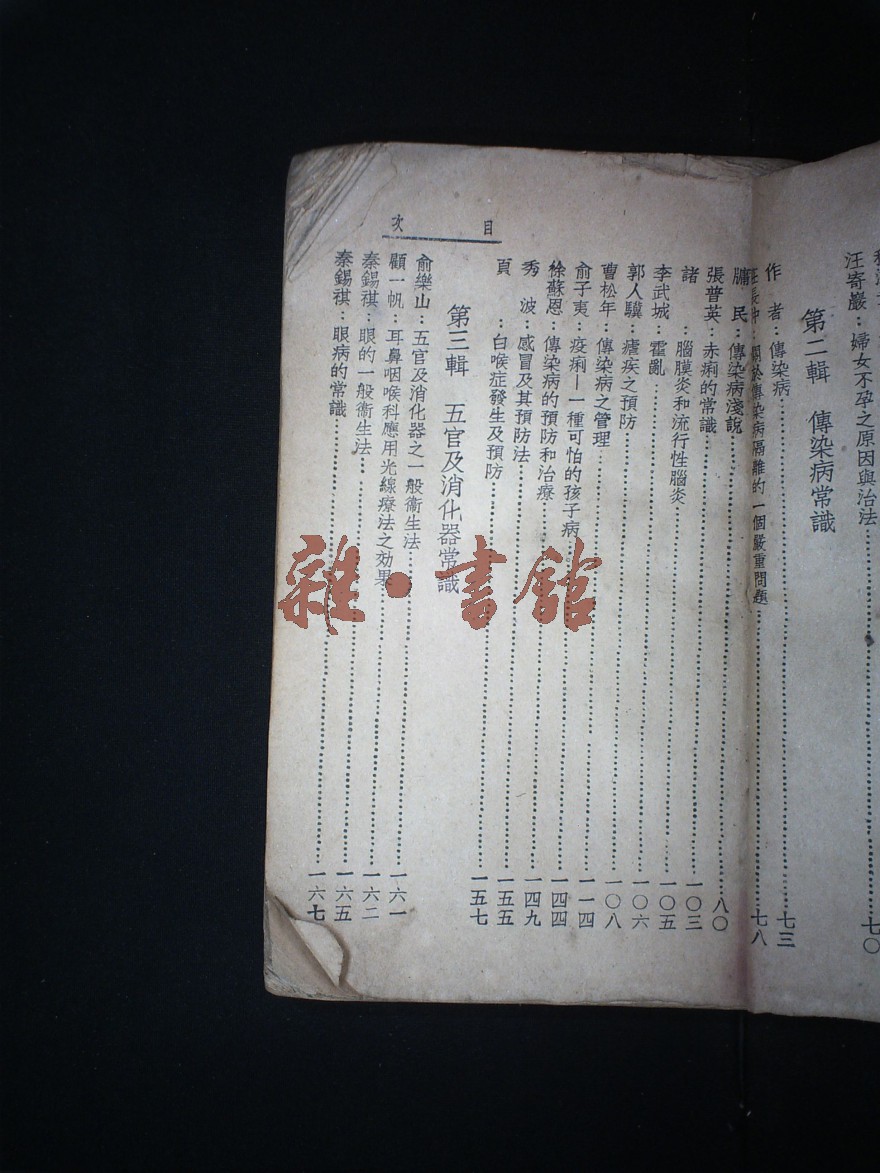 汪寄巖：婦女不孕之原因與治法……七〇
第二輯　傳染病常識
作　者：傳染病……七三
關於傳染病隔離的一個嚴重問題……七八
民：傳染病淺說……八〇
張普英：赤痢的常識……一〇三
諸　：腦膜炎和流行性腦炎……一〇五
李武城：霍亂……一〇六
郭人驥：瘧疾之預防……一〇八
曹松年：傳染病之管理……一一四
俞子夷：疫痢—一種可怕的孩子病……一四四
徐蘇恩：傳染病的預防和治療……一四九
秀　波：感冒及其預防法……一五五
頁　：白喉症發生及預防……一五七
第三輯　五官及消化器常識
俞樂山：五官及消化器之一般衞生法……一六一
顧一帆：耳鼻咽喉科應用光線療法之効果……一六二
秦錫祺：眼的一般衞生法……一六五
秦錫祺：眼病的常識……一六七
目次
雜·書館